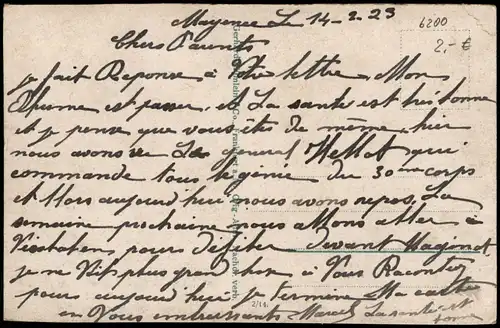 Mayence Le 14-2-23
6200
2,- €
Chers Parents
je fait Reponse à Votre lettre Mon
Rhume est passer, et La santé est très bonne
et je pense que vous êtes de même, hier
nous avons vu Le general Mellot qui
commande tous le génie du 30eme corps
et Alors aujourd'hui nous avons repos, La
semaine prochaine nous Allons aller à
pour defiler devant
je ne Vois plus grand chose à Vous Raconter
pour aujourd'hui je termine Ma carte
en Vous embrassants Marcel La santé est
bonne
2/14.